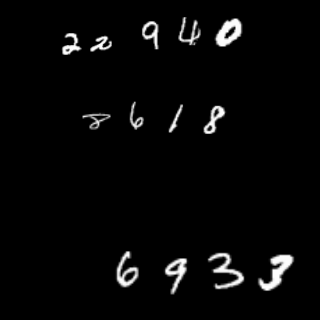 22940
8618
6933